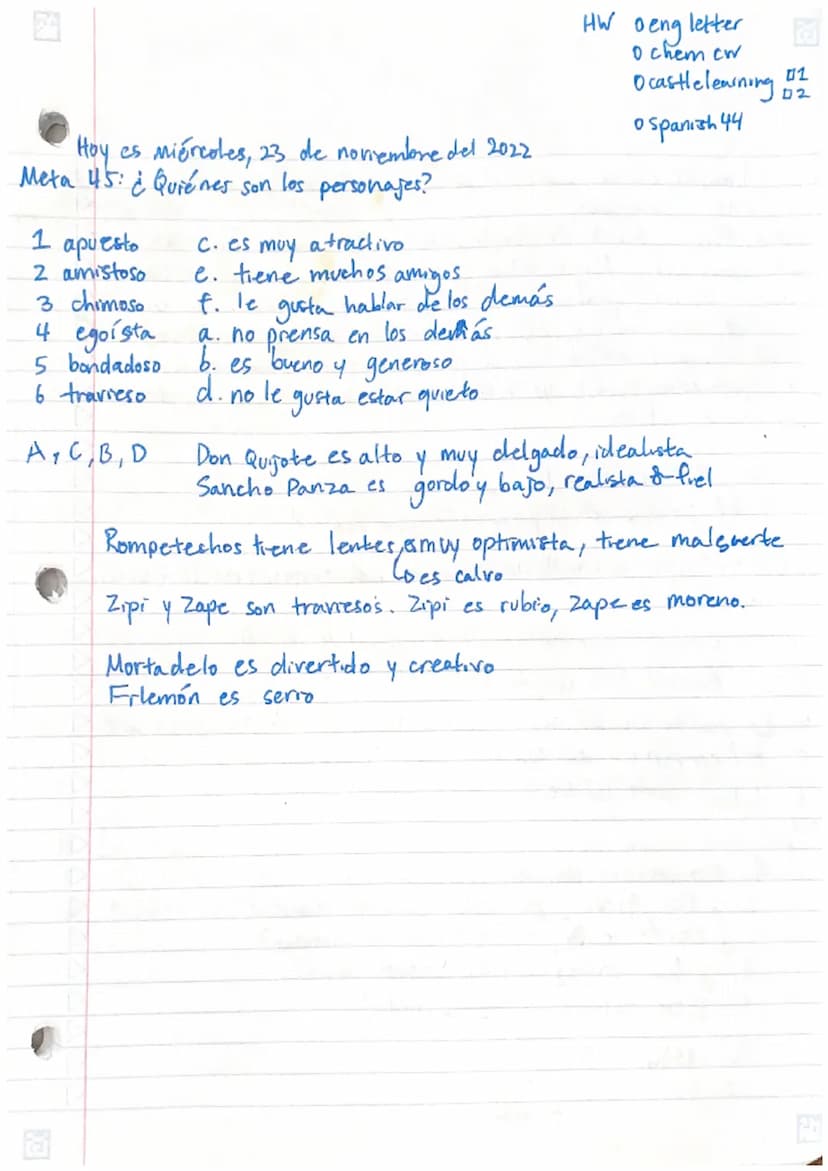 HW o eng letter
o chem cw
o castlelearning □1
□2
o spanish 44
Hoy es miércoles, 23 de noviembre del 2022
Meta 45: ¿Quiénes son los personajes?
1 apuesto c. es muy atractivo
2 amistoso e. tiene muchos amigos
3 chimoso f. le gusta hablar de los demás
4 egoísta a. no piensa en los demás
5 bondadoso b. es bueno y generoso
6 travieso d. no le gusta estar quieto
A, C, B, D Don Quijote es alto y muy delgado, idealista
Sancho Panza es gordo y bajo, realista & fiel
Rompetechos tiene lentes, es muy optimista, tiene mal suerte
↳ es calvo
Zipi y Zape son traviesos. Zipi es rubio, Zape es moreno.
Mortadelo es divertido y creativo
Filemón es serio